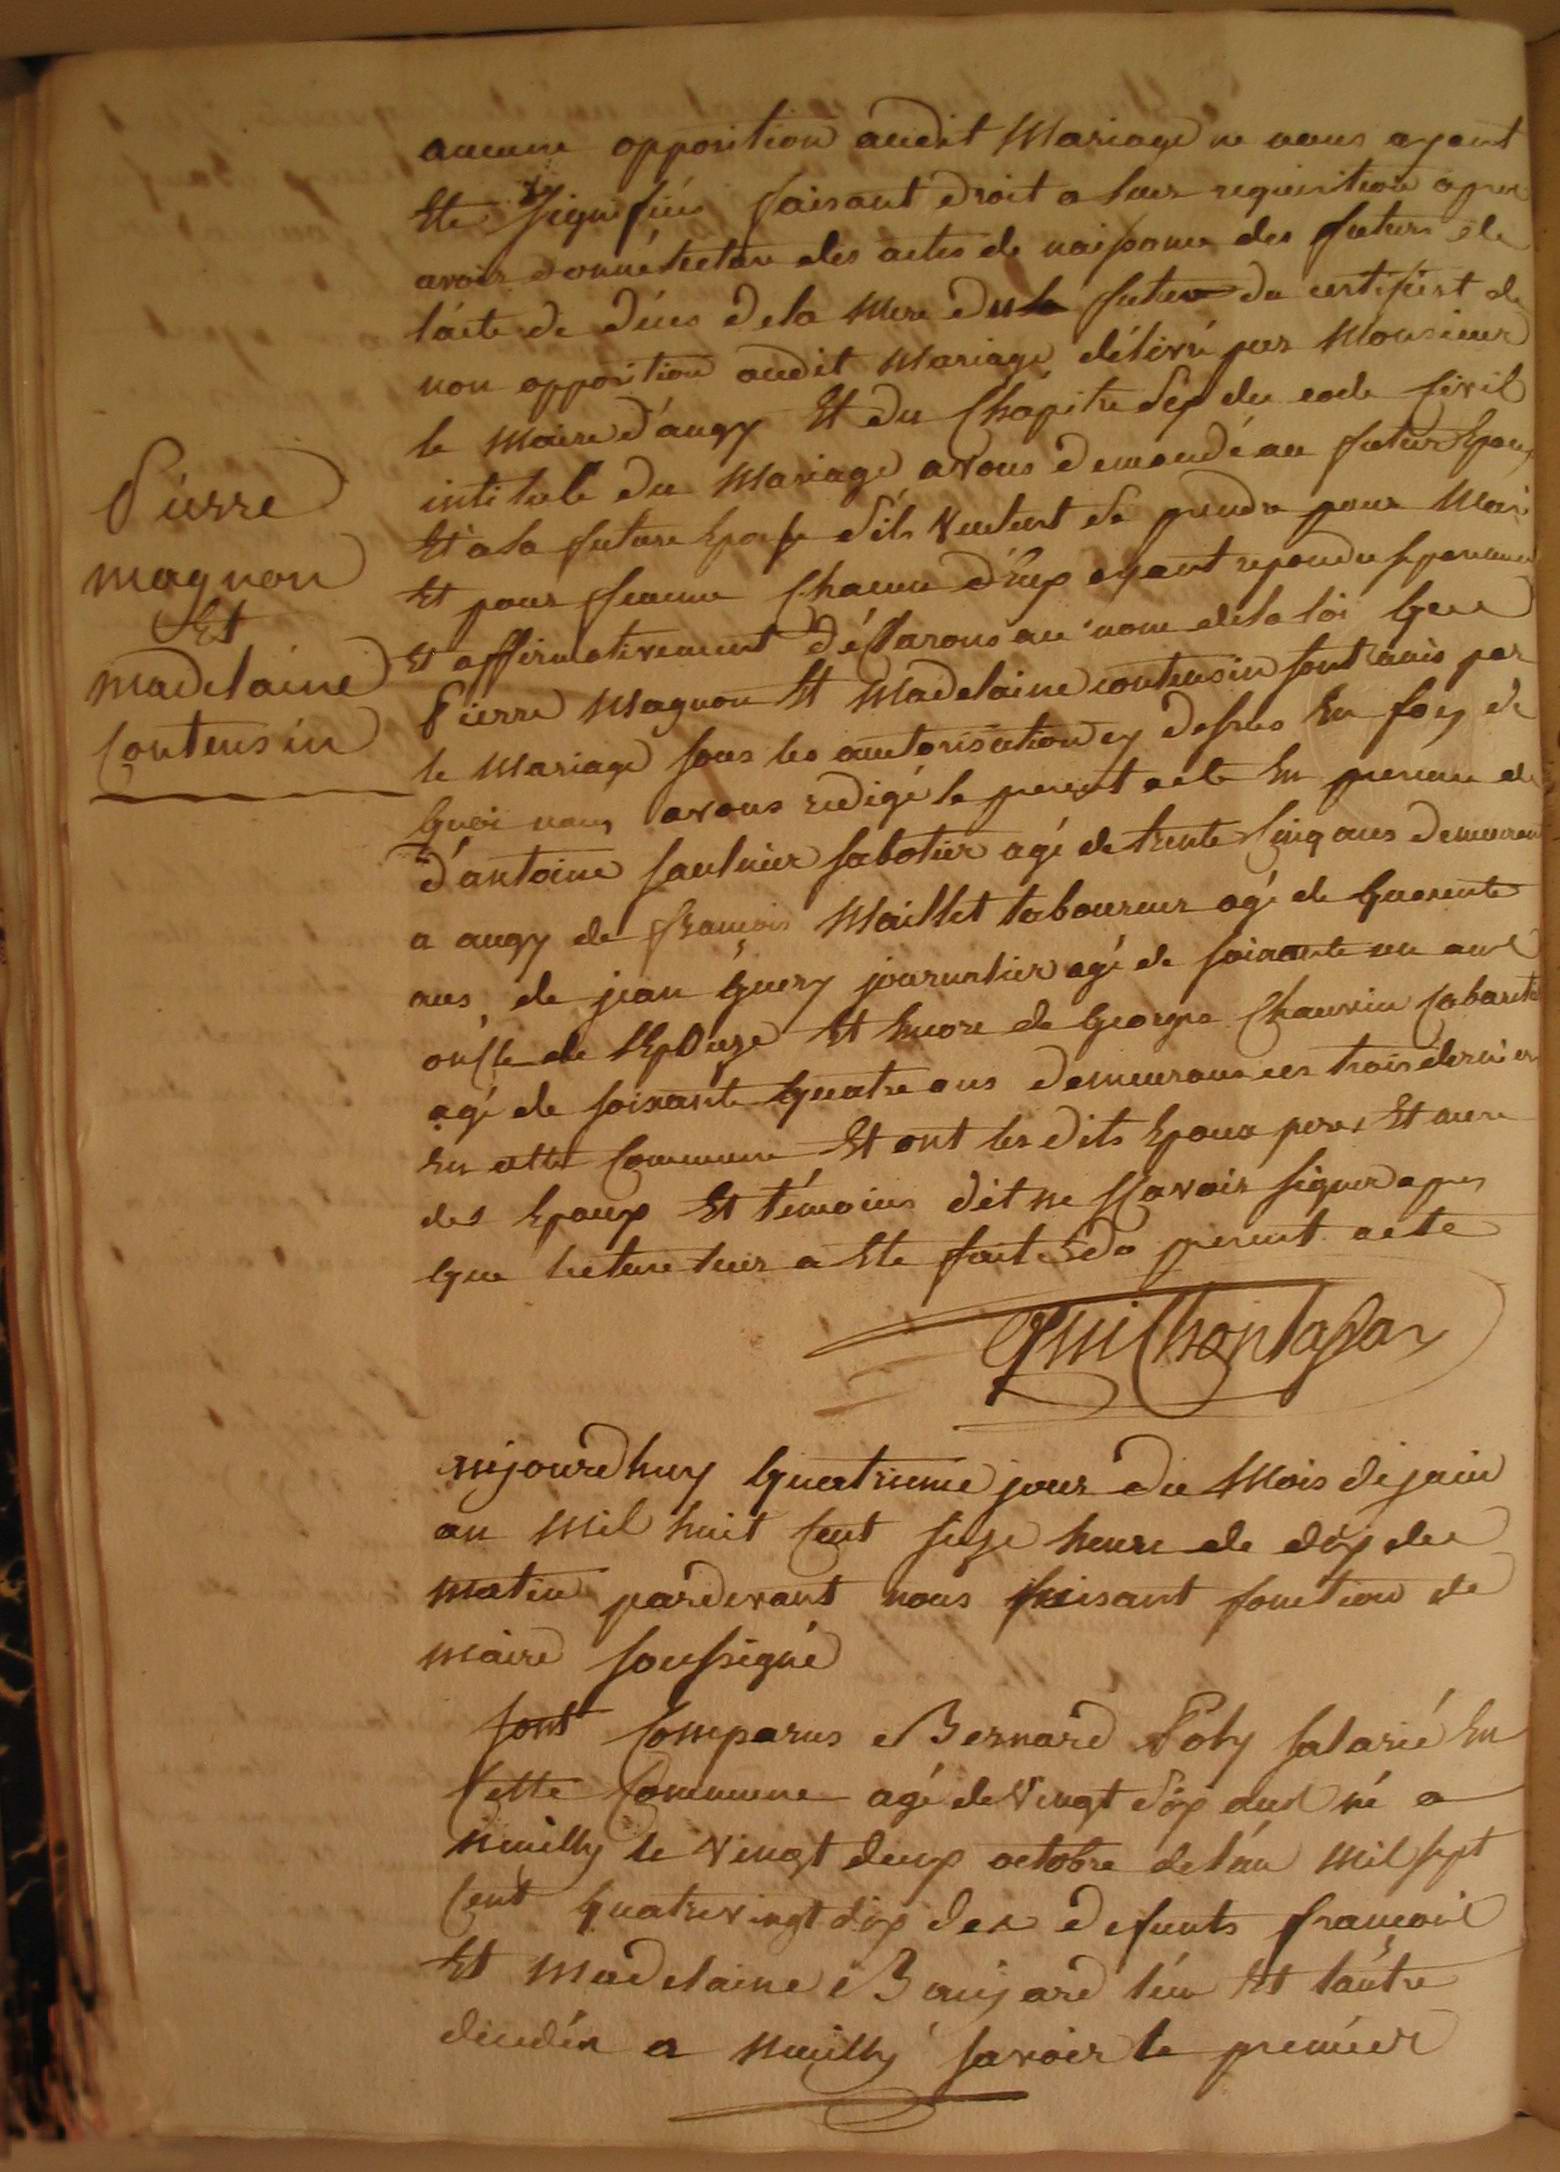 aucune opposition audit Mariage ne nous ayant
Ete Signifiée faisant droit a leur requisition apres
avoir donné lecture des actes de naissance des futurs de
l'acte de décés de la Mere du futur du certificat de
non opposition audit Mariage délivré par Monsieur
le Maire d'augy Et du Chapitre Six du code Civil
intitulé du Mariage avons demandé au futur Epoux
Et a la future Epouse s'ils veulent se prendre pour Mari
Et pour femme Chacun d'eux ayant repondu séparement
Et affirmativement déclarons au nom de la loi que
Pierre Magnon Et Madelaine contensin sont unis par
le Mariage sous les autorisation cy dessus En foy de
quoi nous avons redigé le present acte En presence de
d'antoine saulnier sabotier agé de trente Cinq ans demeurant
a augy de françois Maillet laboureur agé de quarente
ans, de jean guery journalier agé de soixante un ans
oncle de l'Epouze Et Encore de George Chauvin Cabaretier
agé de soixante quatre ans demeurans ces trois dernier
En cette Commune Et ont les dits Epoux peres Et mere
des Epoux Et témoins dit ne sçavoir signer apres
que lecture leur a Ete faite du present acte
Pierre
magnon
Et
madelaine
Contensin
aujourd huy quatrieme jour du Mois de juin
an Mil huit Cent seize heure de dix du
matin pardevant nous faisant fonction de
maire soussigné
sont Comparus Bernard Poly salarié En
Cette Commune agé de vingt six ans né a
neuilly le vingt deux octobre de l'an Mil sept
Cent quatrevingt dix des defunts françois
Et Madelaine Baujard l'un Et l'autre
décedés a neuilly savoir le premier